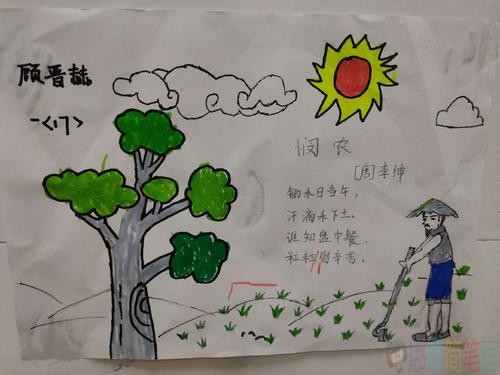 顾晋赫
一<17>
悯农
[唐]李绅
锄禾日当午，
汗滴禾下土。
谁知盘中餐，
粒粒皆辛苦。
简笔画